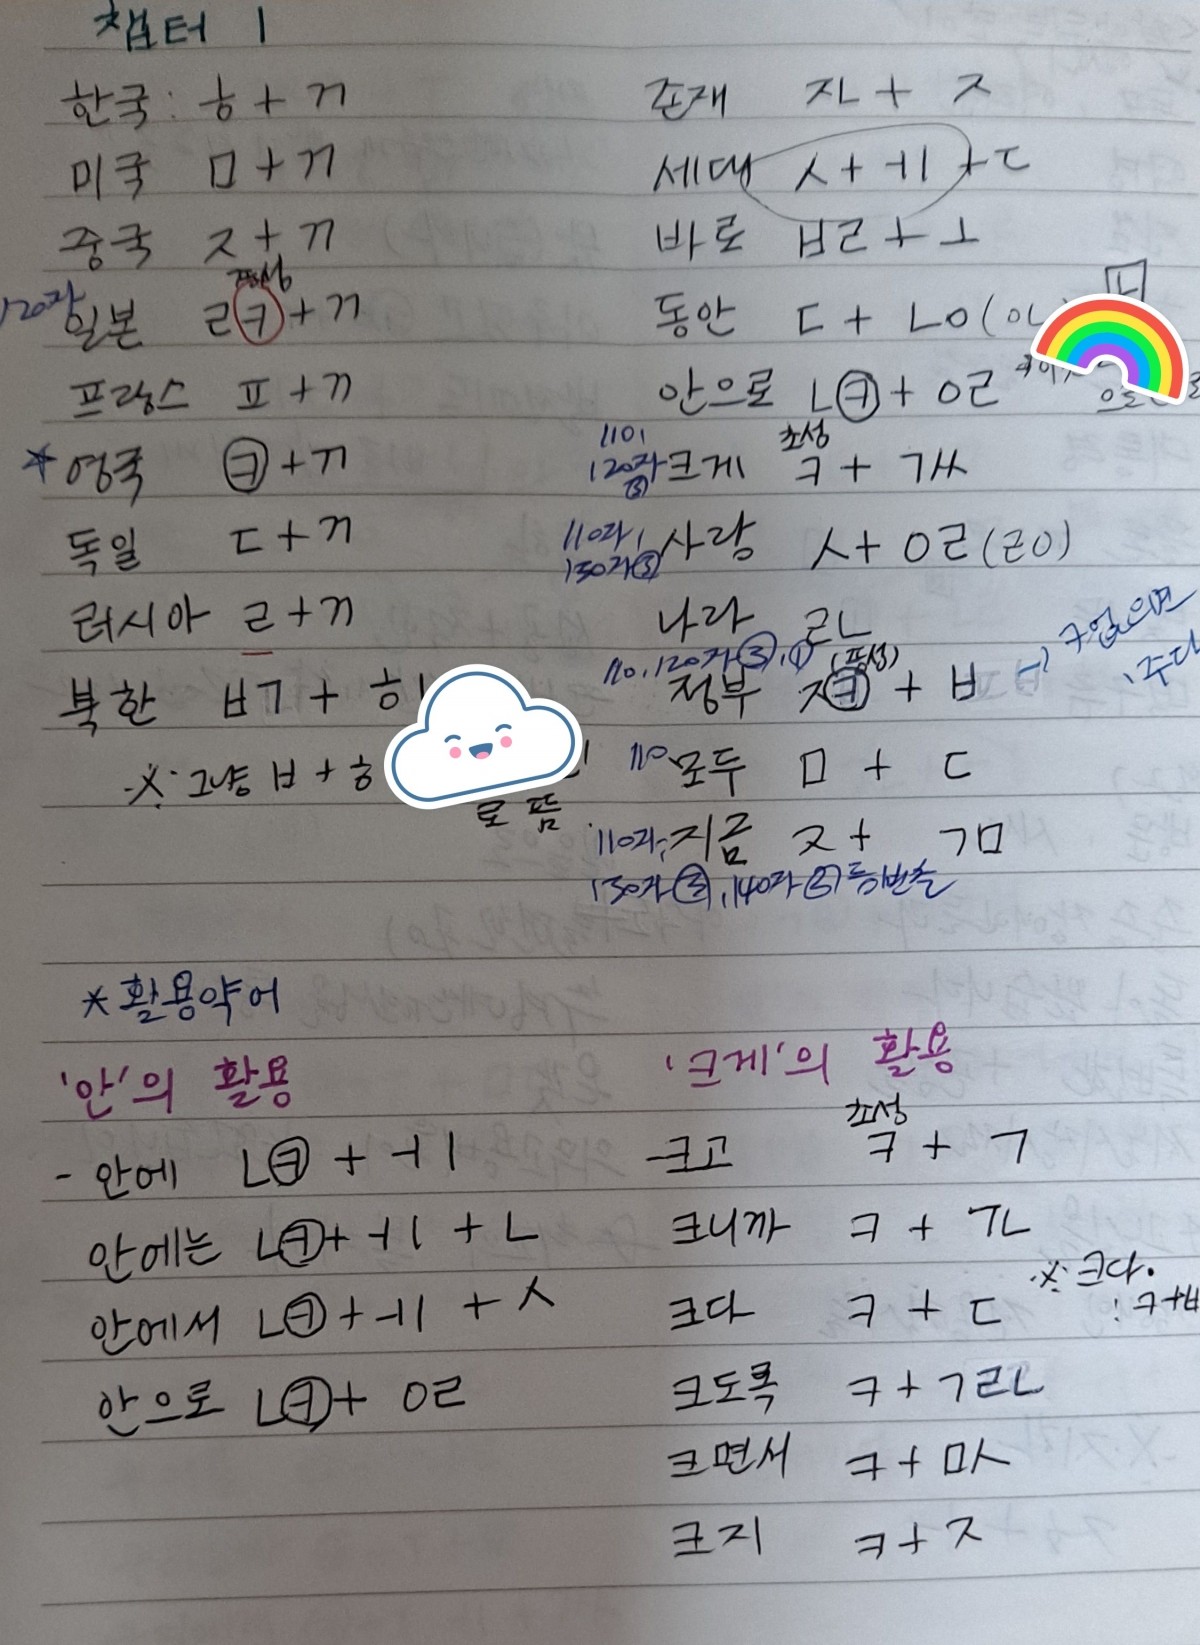 챕터 1
한국 : ㅎ + ㄲ
미국 ㅁ + ㄲ
중국 ㅈ + ㄲ
120자 일본 ㄹㅋ + ㄲ
프랑스 ㅍ + ㄲ
* 영국 ㅋ + ㄲ
독일 ㄷ + ㄲ
러시아 ㄹ + ㄲ
북한 ㅂㄱ + ㅎ
※ 그냥 ㅂ + ㅎ
로 뜸
존재 ㅈㄴ + ㅈ
세대 ㅅ + ㅔ + ㄷ
바로 ㅂㄹ + ㅗ
동안 ㄷ + ㄴㅇ
안으로 ㄴㅋ + ㅇㄹ
110,
120자 ③ 크게 초성 ㅋ + ㄱㅆ
110자,
130자 ③ 사랑 ㅅ + ㅇㄹ (ㄹㅇ)
나라 ㄹㄴ
110, 120자 ③, ①
정부 ㅈㅋ (종성) + ㅂ
110 모두 ㅁ + ㄷ
110자, 지금 ㅈ + ㄱㅁ
130자 ③, 140자 ② 등 빈출
* 활용약어
'안'의 활용
- 안에 ㄴㅋ + ㅔ
안에는 ㄴㅋ + ㅔ + ㄴ
안에서 ㄴㅋ + ㅔ + ㅅ
안으로 ㄴㅋ + ㅇㄹ
'크게'의 활용
초성
크고 ㅋ + ㄱ
크니까 ㅋ + ㄱㄴ
크다 ㅋ + ㄷ
※ 크다.
크도록 ㅋ + ㄱㄹㄴ
크면서 ㅋ + ㅁㅅ
크지 ㅋ + ㅈ